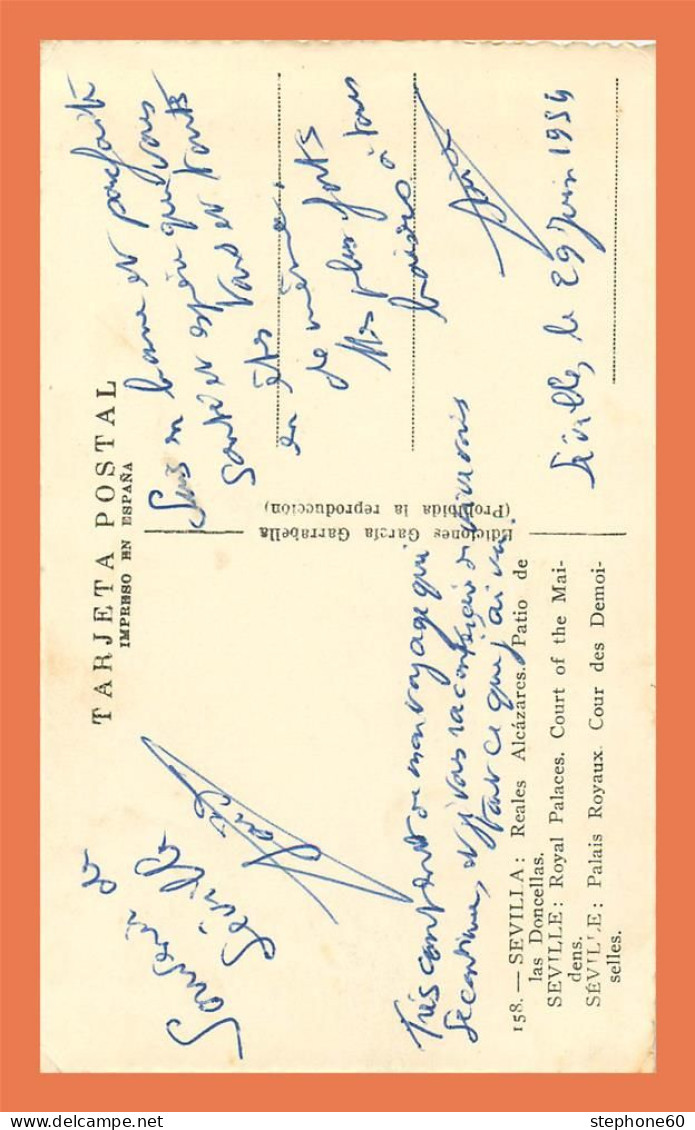 TARJETA POSTAL
IMPRESO EN ESPAÑA
Souvenir de
Séville
Très content de mon voyage qui
se continue, et je vous raconterai de vive voix
tout ce que j'ai vu.
158. — SEVILLA: Reales Alcázares. Patio de
las Doncellas.
SEVILLE: Royal Palaces. Court of the Mai-
dens.
SÉVILLE: Palais Royaux. Cour des Demoi-
selles.
Ediciones García Garrabella
(Prohibida la reproducción)
Suis en bonne et parfaite
santé et espère que vous
tous et toutes
en êtes
de même.
Mes plus forts
baisers à tous
Séville, le 29 Juin 1954
stephone60